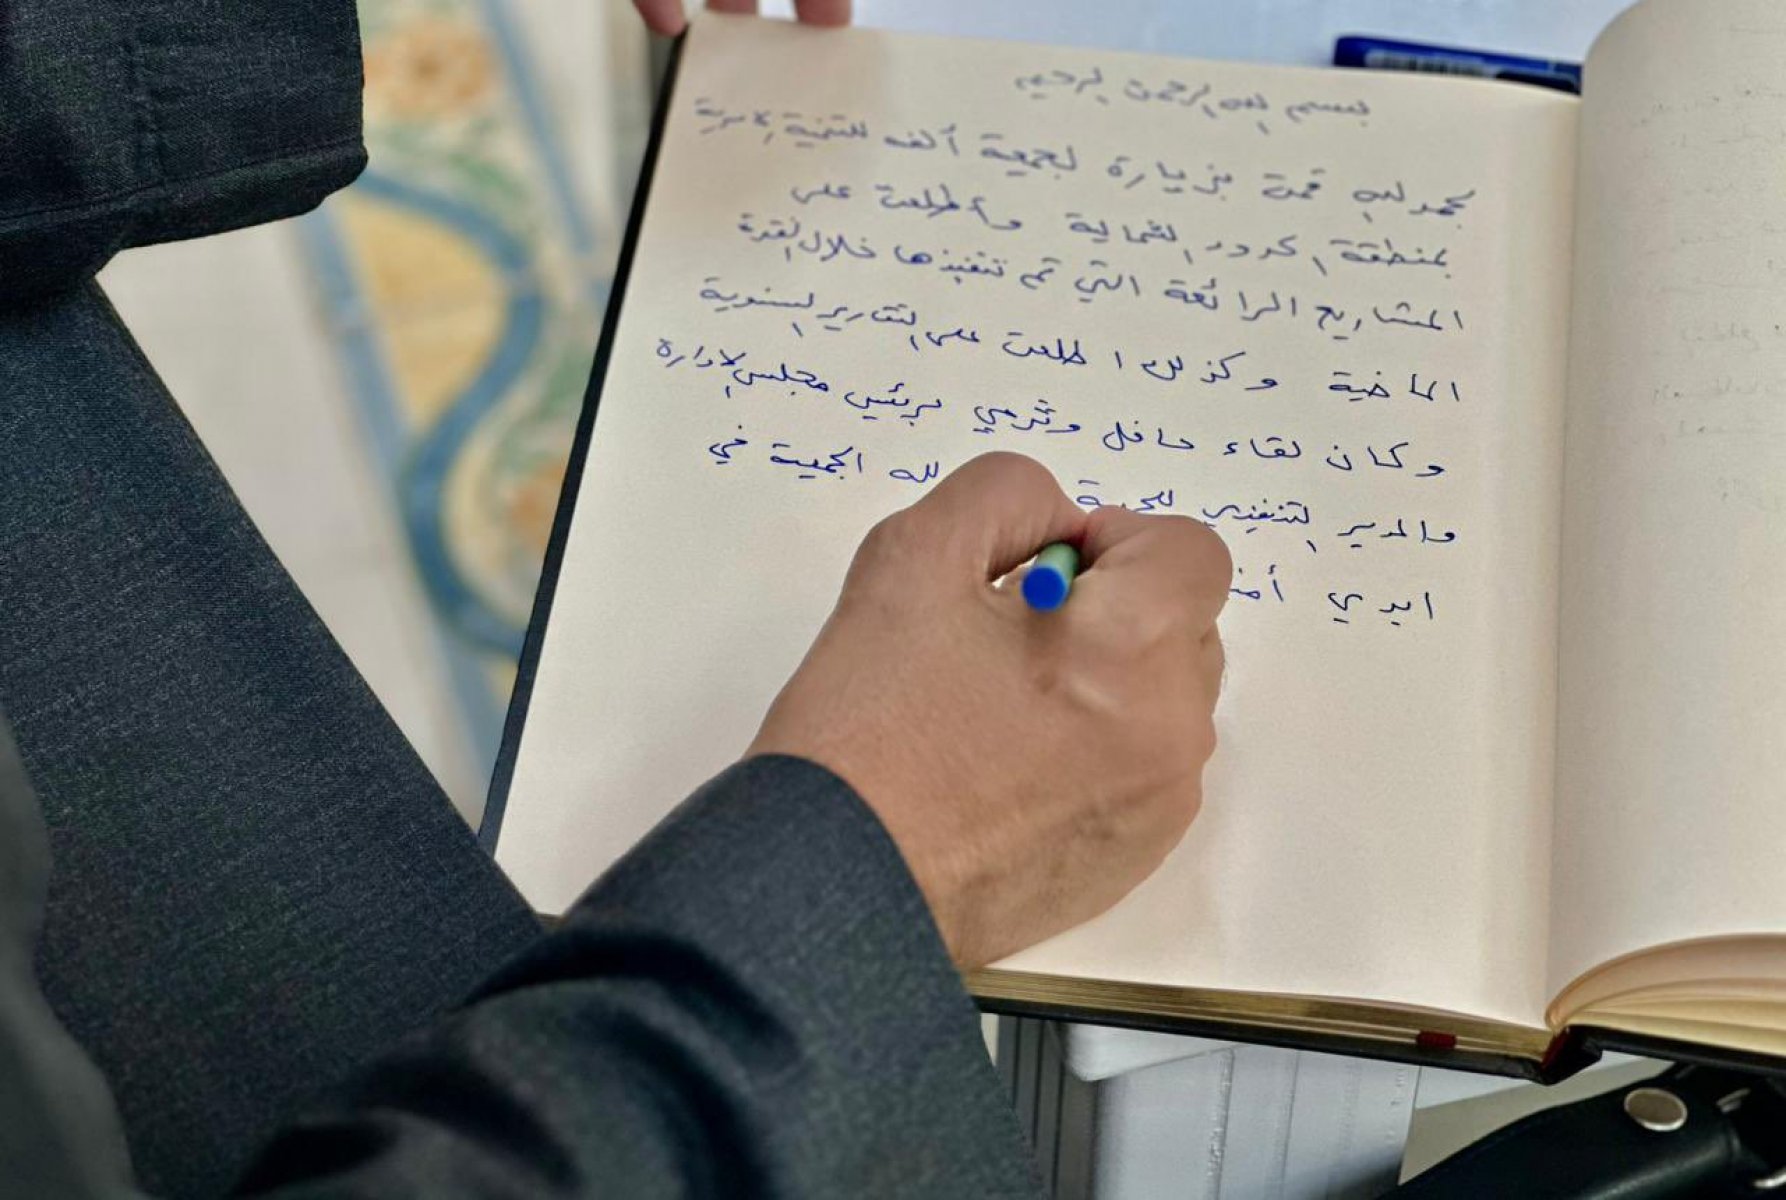 بسم الله الرحمن الرحيم
بحمد لله قمت بزيارة لجمعية ألفه للتنمية الاسرية
بمنطقة الحدود الشمالية وأطلعت على
المشاريع الرائعة التي تم تنفيذها خلال الفترة
الماضية وكذلك اطلعت على التقارير السنوية
وكان لقاء حافل وثري برئيس مجلس الادارة
والمدير التنفيذي للجمعية لله الجمعية في
ايدي